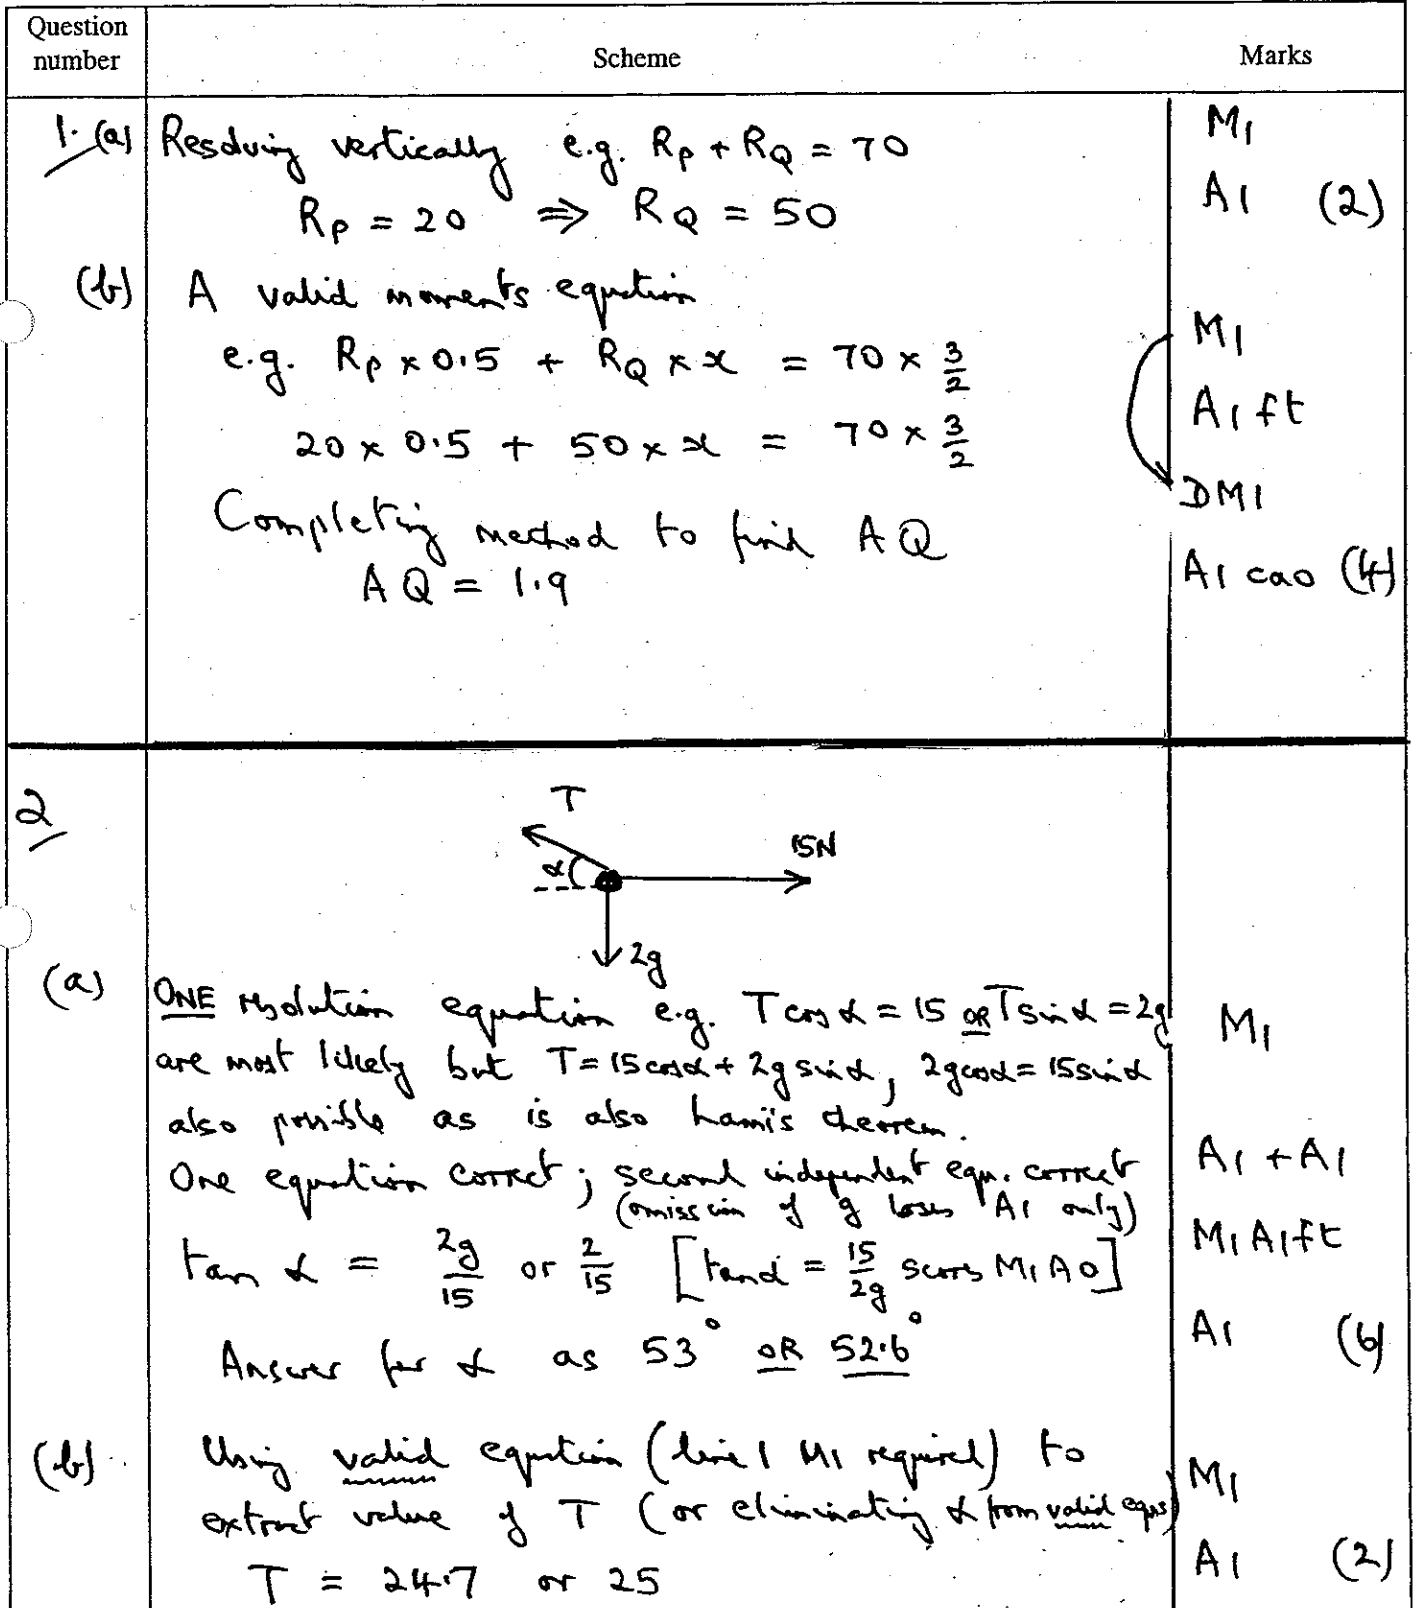 Question number Scheme Marks
1. (a) Resolving vertically e.g. Rp + RQ = 70 M1
Rp = 20 ⇒ RQ = 50 A1 (2)
(b) A valid moments equation
e.g. Rp × 0.5 + RQ × x = 70 × 3/2 M1
20 × 0.5 + 50 × x = 70 × 3/2 A1 ft
Completing method to find AQ DM1
AQ = 1.9 A1 cao (4)
2
T
α
15N
2g
(a) ONE resolution equation e.g. T cos α = 15 OR T sin α = 2g M1
are most likely but T = 15 cos α + 2g sin α, 2g cos α = 15 sin α
also possible as is also Lami's theorem.
One equation correct; second independent eqn. correct A1 + A1
(omission of g loses A1 only)
tan α = 2g/15 or 2/15 [tan α = 15/2g scores M1 A0] M1 A1 ft
Answer for α as 53° OR 52.6° A1 (6)
(b) Using valid equation (line 1 M1 required) to
extract value of T (or eliminating α from valid eqns) M1
T = 24.7 or 25 A1 (2)